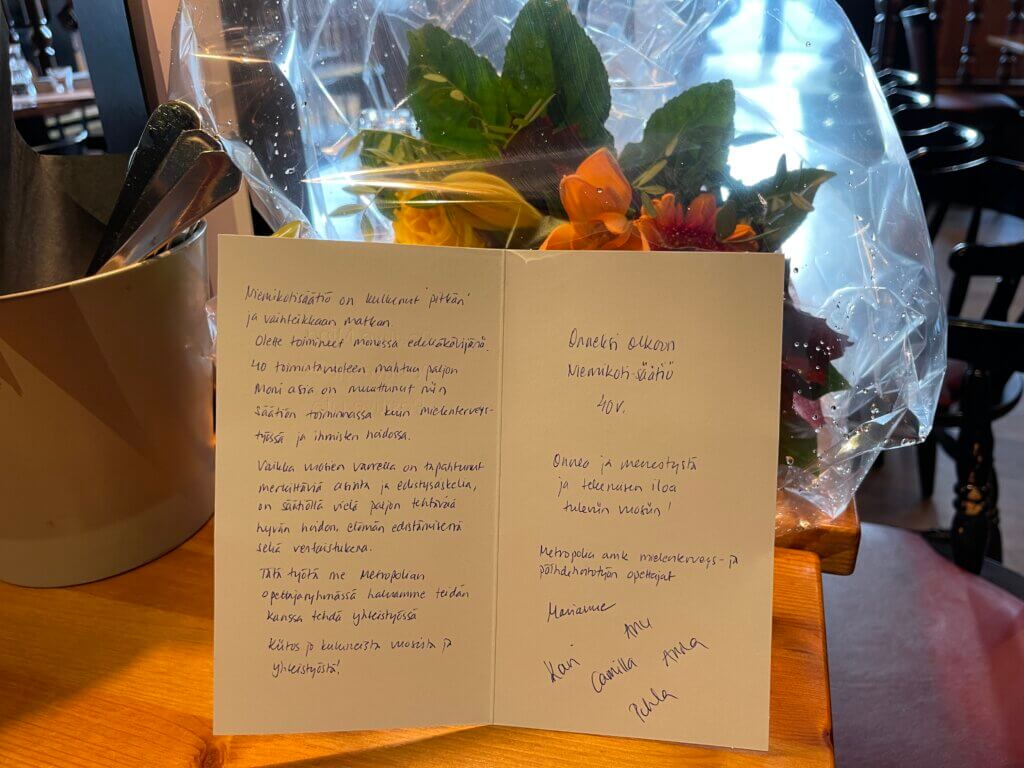 Niemikotisäätiö on kulkenut pitkän
ja vaiheikkaan matkan.
Olette toimineet monessa edelläkävijänä.
40 toimintavuoteen mahtuu paljon
Moni asia on muuttunut niin
säätiön toiminnassa kuin mielenterveys-
työssä ja ihmisten hoidossa.
Vaikka vuosien varrella on tapahtunut
merkittäviä asioita ja edistysaskelia,
on säätiöllä vielä paljon tehtävää
hyvän hoidon, elämän edistämisenä
sekä vertaistukena.
Tätä työtä me Metropolian
opettajaryhmässä haluamme teidän
kanssa tehdä yhteistyössä
Kiitos jo kuluneista vuosista ja
yhteistyöstä!
Onneksi olkoon
Niemikoti-säätiö
40 v.
Onnea ja menestystä
ja tekemisen iloa
tuleviin vuosiin!
Metropolia amk mielenterveys- ja
päihdehoitotyön opettajat
Marianne
Anu
Kari
Camilla
Anna